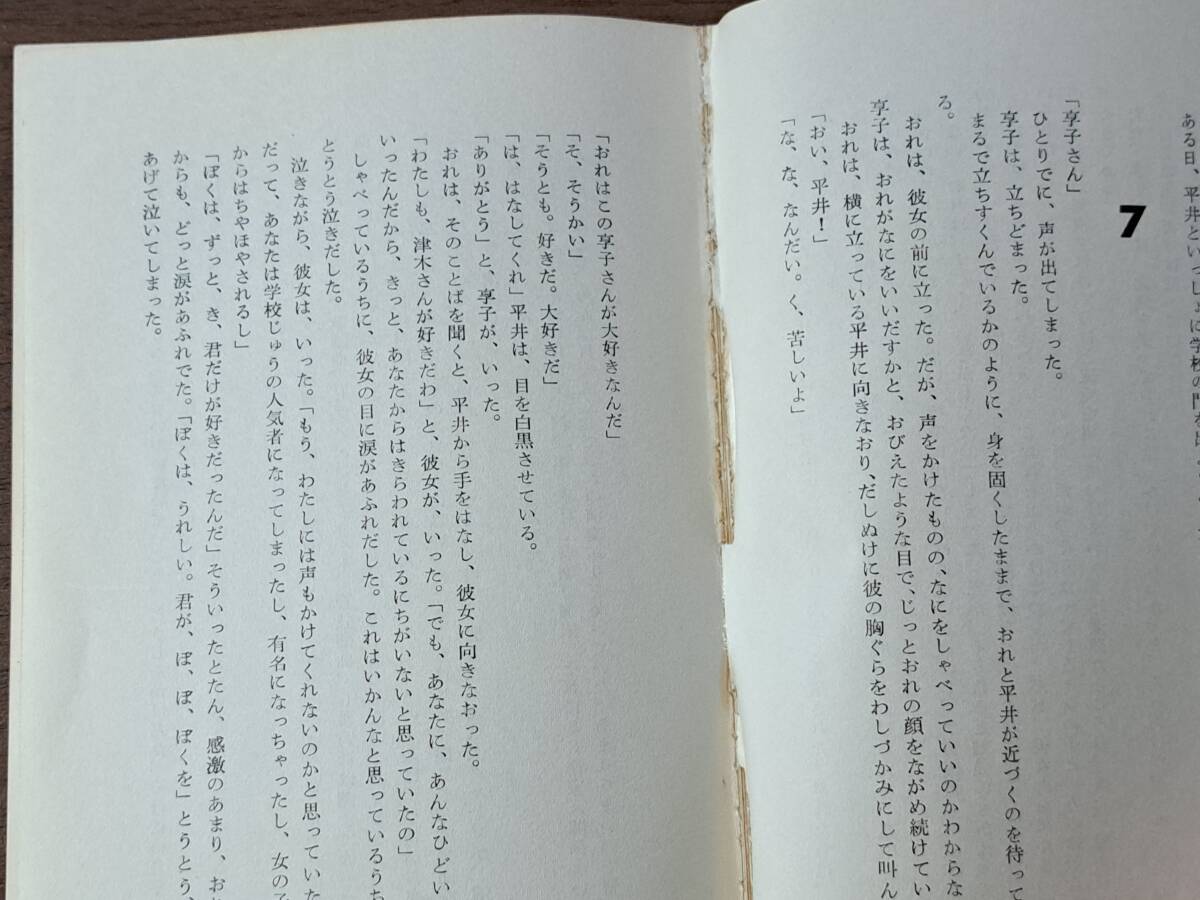 ある日、平井といっしょに学校の門を
7
「享子さん」
ひとりでに、声が出てしまった。
享子は、立ちどまった。
まるで立ちすくんでいるかのように、身を固くしたままで、おれと平井が近づくのを待って
る。
おれは、彼女の前に立った。だが、声をかけたものの、なにをしゃべっていいのかわからな
享子は、おれがなにをいいだすかと、おびえたような目で、じっとおれの顔をながめ続けてい
おれは、横に立っている平井に向きなおり、だしぬけに彼の胸ぐらをわしづかみにして叫ん
「おい、平井！」
「な、な、なんだい。く、苦しいよ」
「おれはこの享子さんが大好きなんだ」
「そ、そうかい」
「そうとも。好きだ。大好きだ」
「は、はなしてくれ」平井は、目を白黒させている。
「ありがとう」と、享子が、いった。
おれは、そのことばを聞くと、平井から手をはなし、彼女に向きなおった。
「わたしも、津木さんが好きだわ」と、彼女が、いった。「でも、あなたに、あんなひどい
いったんだから、きっと、あなたからはきらわれているにちがいないと思っていたの」
しゃべっているうちに、彼女の目に涙があふれだした。これはいかんなと思っているうち
とうとう泣きだした。
泣きながら、彼女は、いった。「もう、わたしには声もかけてくれないのかと思っていた
だって、あなたは学校じゅうの人気者になってしまったし、有名になっちゃったし、女の子
からはちやほやされるし」
「ぼくは、ずっと、き、君だけが好きだったんだ」そういったとたん、感激のあまり、おれ
からも、どっと涙があふれでた。「ぼくは、うれしい。君が、ぼ、ぼ、ぼくを」とうとう、
あげて泣いてしまった。